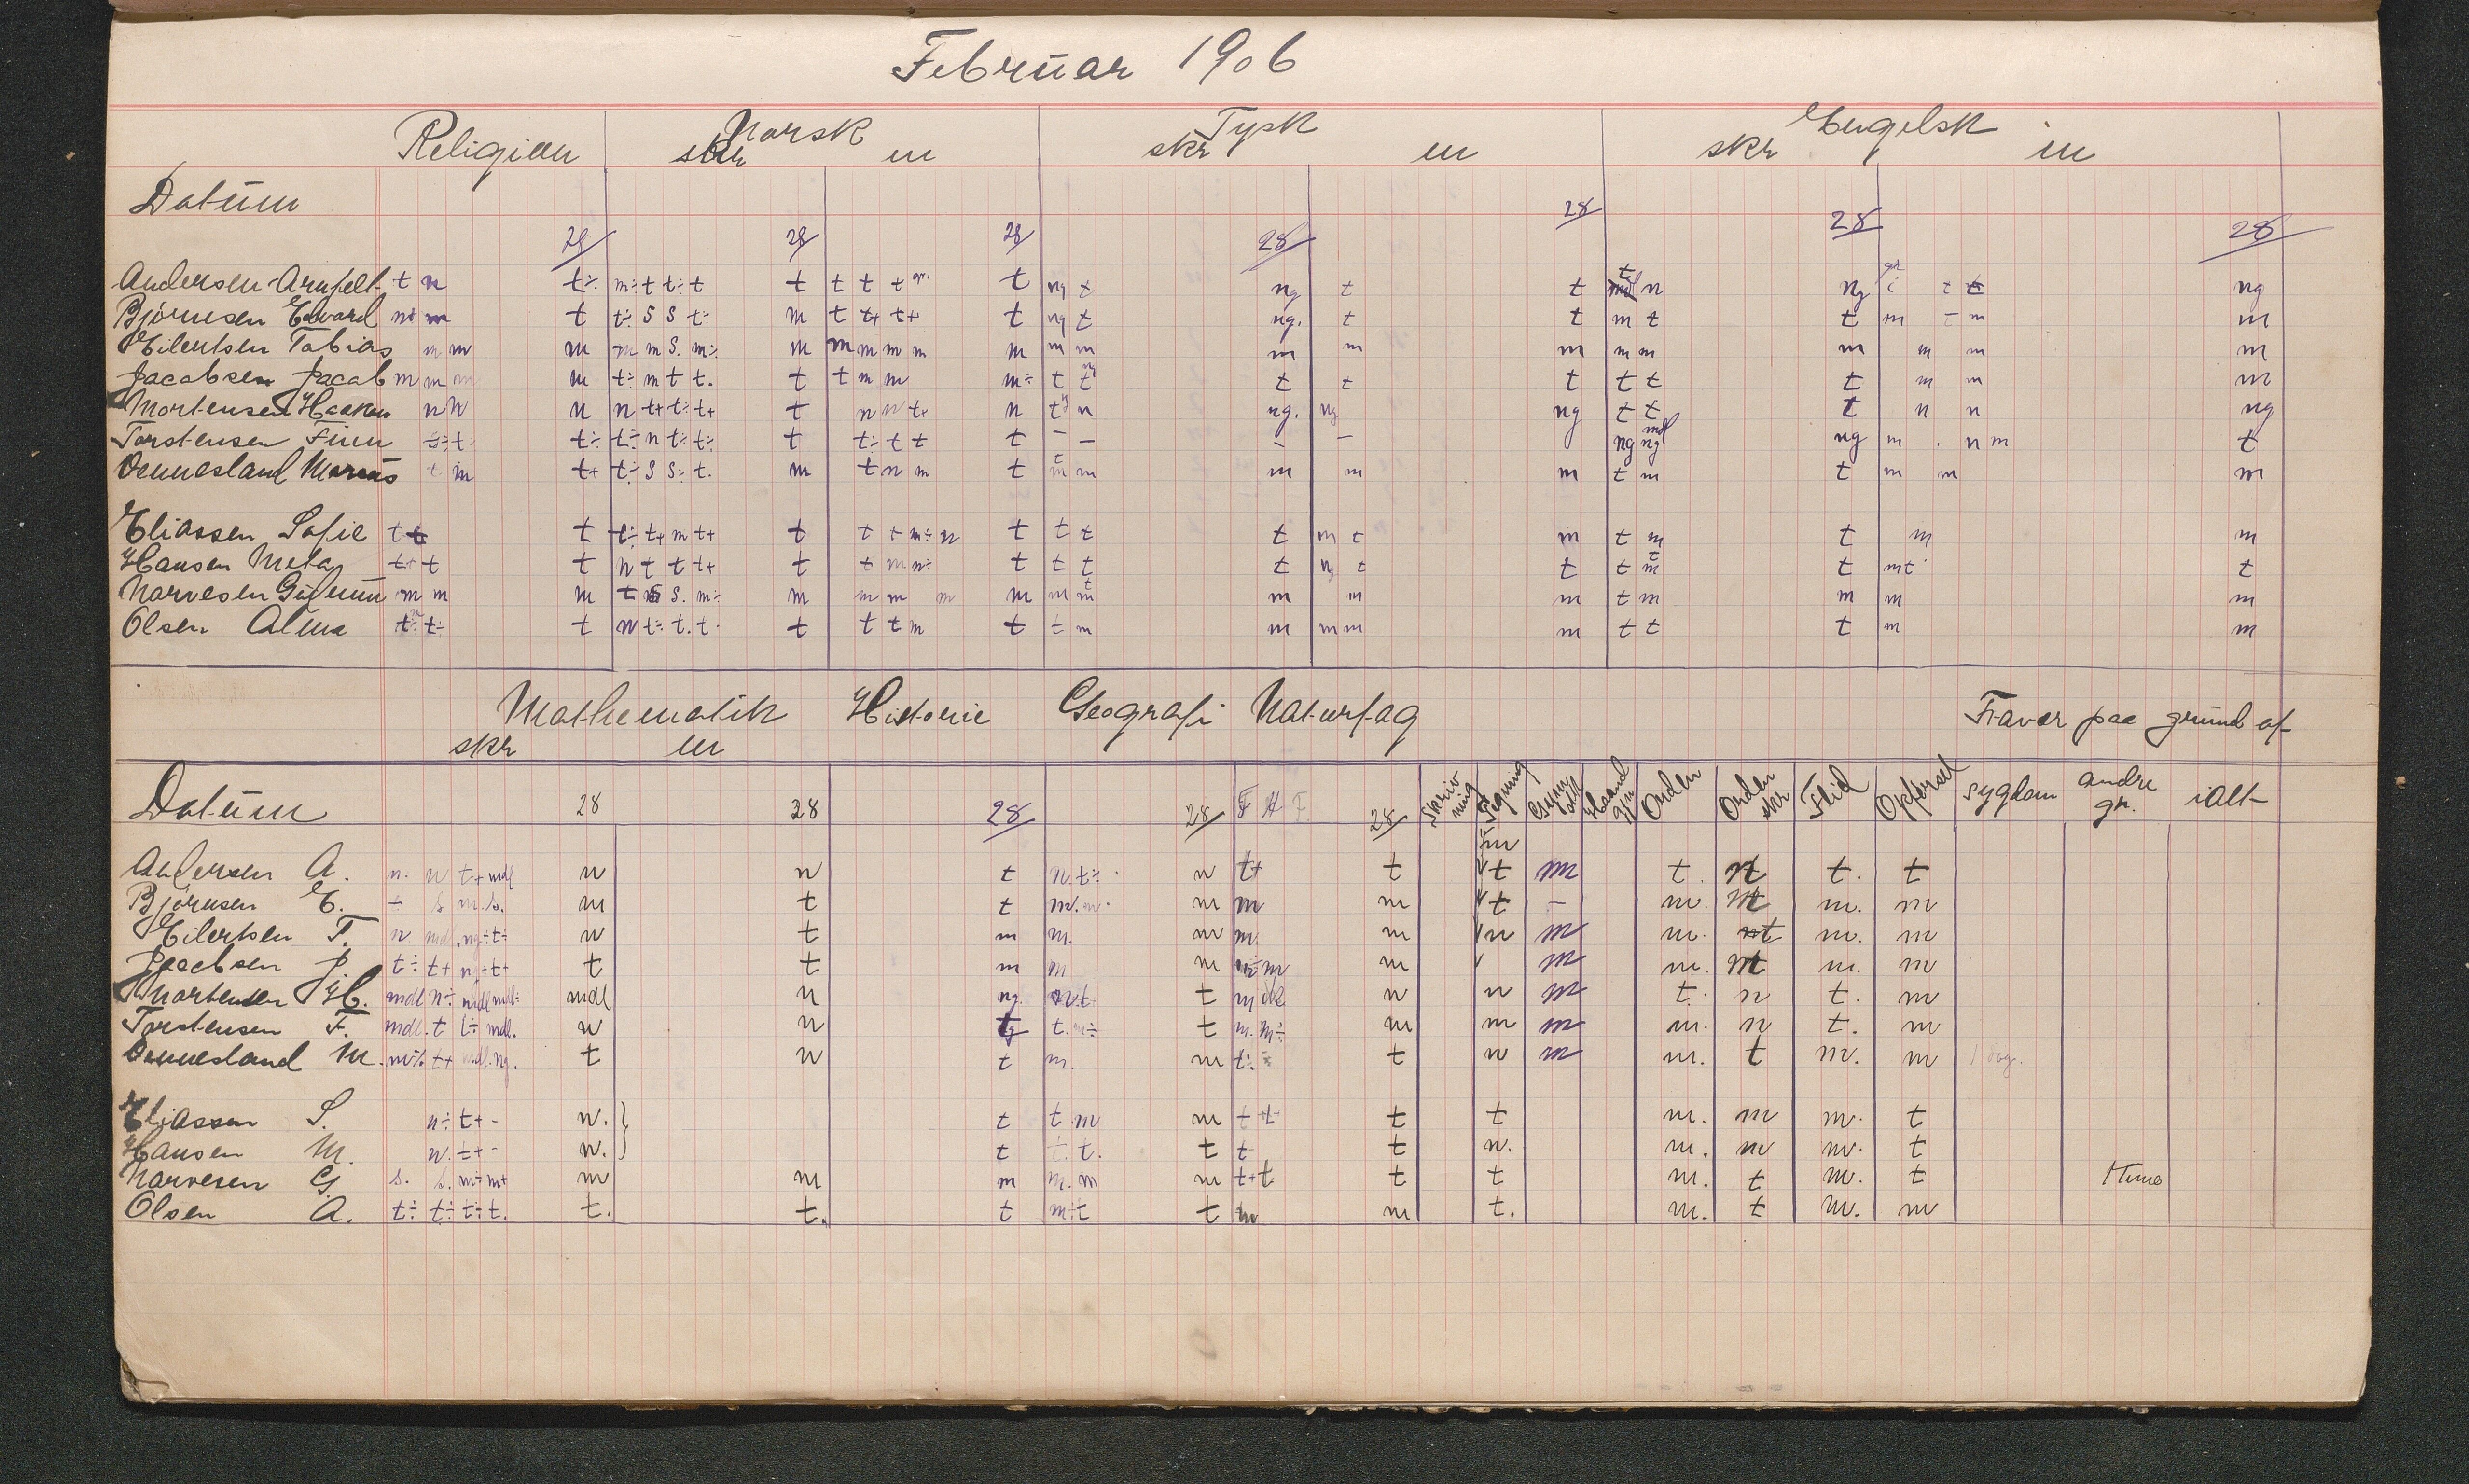 Februar 1906
Religion Norsk Tysk Engelsk
skr m skr m skr m
Datum
28 28 28 28 28 28 28
Andersen t n t÷ m÷ t t÷ t t t t t t ng t ng t t n ng t t ng
Bjørnesen Edvard t t÷ S S t÷ m t t+ t+ t ng t ng. t t m t t m m m
Eilertsen Tobias m m m m m S. m÷ m m m m m m m m m m m m m m m m m
Jacobsen Jacob m m m m t÷ m t t. t t m m m÷ t t t t t t t t m m m
Mortensen Haakon n n n n t+ t÷ t+ t n n t+ n t n ng. ng ng t t t n n ng
Torstensen Finn t÷ t t÷ t÷ n t÷ t÷ t t÷ t t t – – – – ng ng ng m n m t
Oennesland Marcus t m t+ t÷ S S÷ t. m t n m t m m m m m t m t m m m
Eliassen Sofie t t t t÷ t+ m t+ t t t m÷ n t t t t m t m t m t m m
Hansen Meta t+ t t n t t t+ t t m n÷ t t t t ng t t t m t m t t
Narvesen m m m t S. m÷ m m m m m m m m m m t m m m m
Olsen Alma t÷ t÷ t n t÷ t. t. t t t m t t m m m m m t t t m m
Mathematik Historie Geografi Naturfag Fravær paa grund af
skr m
Datum 28 28 28 28 F H F 28 Skriv ning Tegning Haand gjr Orden Orden skr Flid Opførsel sygdom andre gr. ialt
Andersen A. n. n t+ mdl n n t n. t÷ n t+ t t m t. t. t
Bjørnesen E. t S m. s. m t t m. m. m m m t – m. m. m
Eilertsen T. n mdl. ng÷ t÷ n t m m. m m. m n m m. m. m
Jacobsen J. t÷ t+ ng÷ t+ t t m m m m m m m. m. m
Mortensen H. mdl n÷ mdl mdl÷ mdl n ng. t n n m t. n t. m
Torstensen F. mdl. t t÷ mdl. n n t. m÷ t m. m÷ m m m m. n t. m
Oennesland M. t+ mdl. ng. t n t m. m t÷ t n m m. t m. m
Eliassen S. n÷ t+ - n. t t m m t t t t m. m m. t
Hansen M. n. t+ - n. t t. t. t t t n. m. m m. t
Narvesen G. s. s. m÷ m+ m m m m. m m t+ t t t m. t m. t 1 time
Olsen A. t÷ t÷ t÷ t. t. t. t m÷ t t m m t. m. t m. m